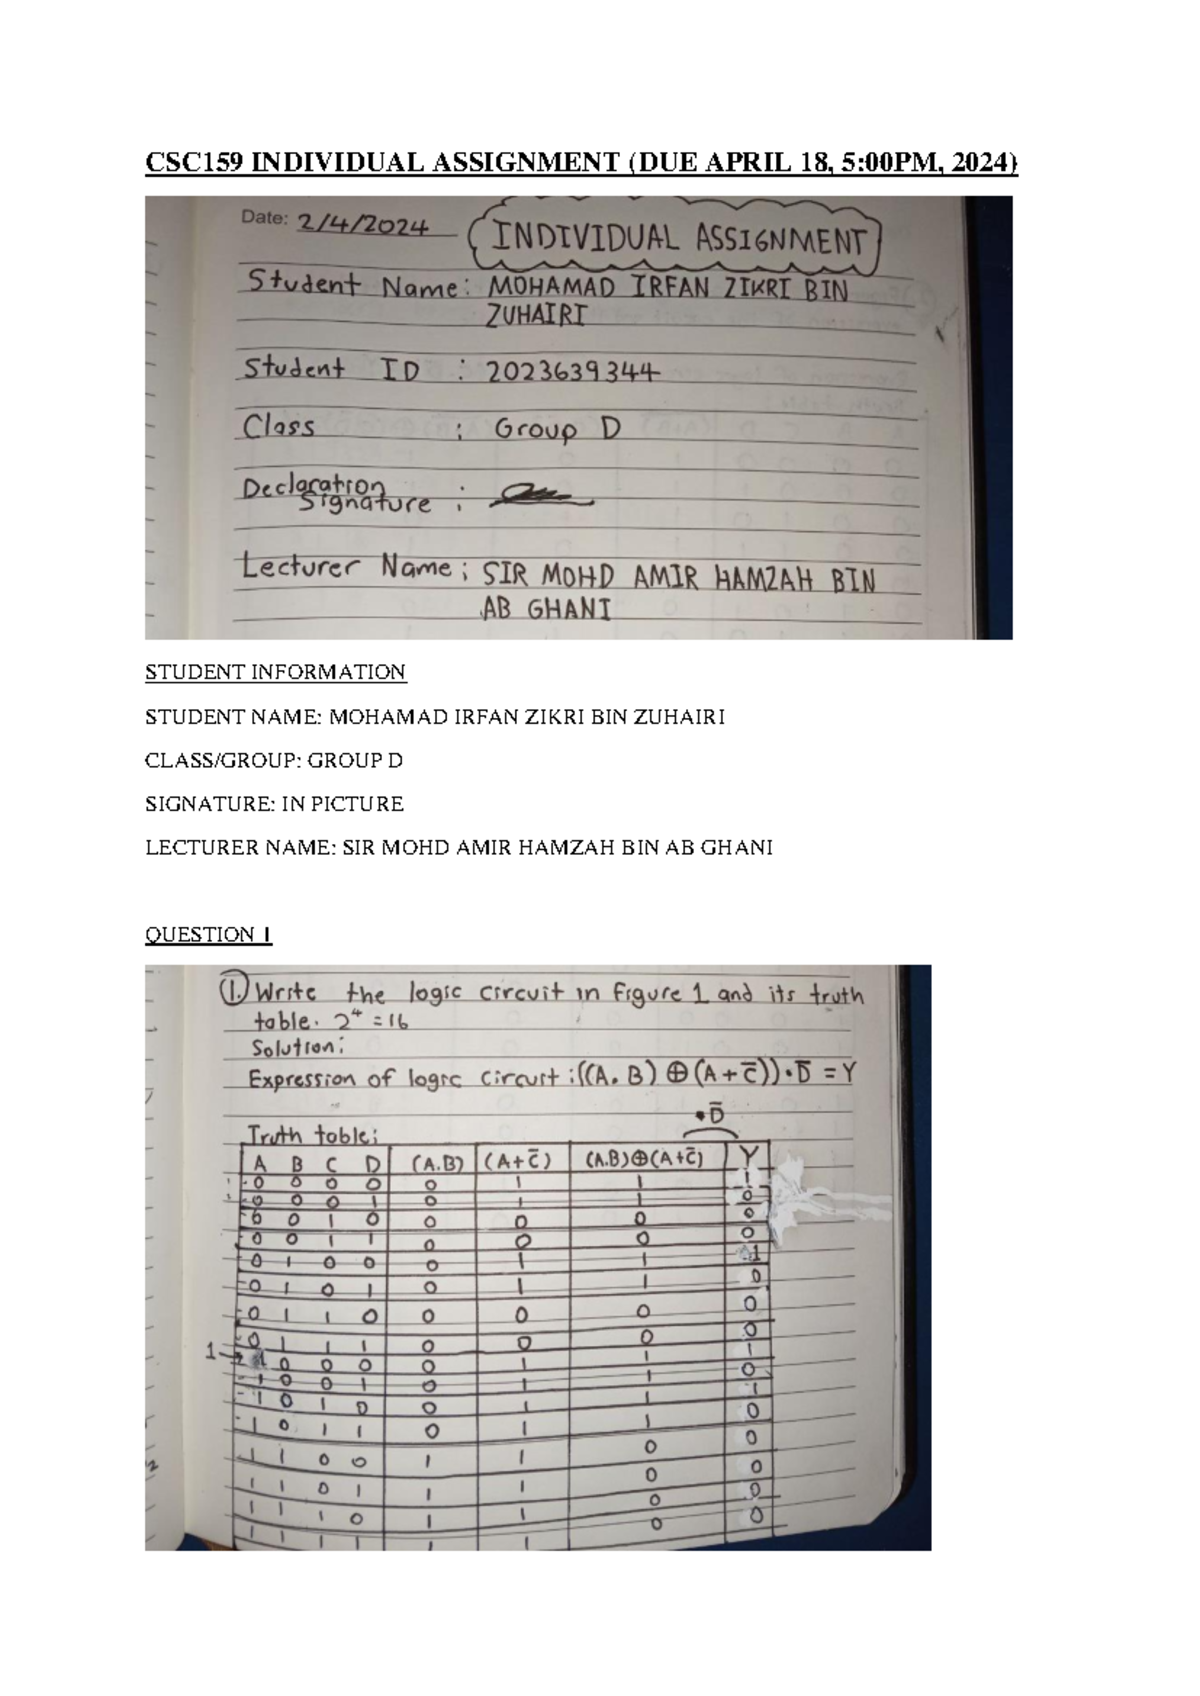 CSC159 INDIVIDUAL ASSIGNMENT (DUE APRIL 18, 5:00PM, 2024)
Date: 2/4/2024 INDIVIDUAL ASSIGNMENT
Student Name: MOHAMAD IRFAN ZIKRI BIN
ZUHAIRI
Student ID : 2023639344
Class : Group D
Declaration
Signature :
Lecturer Name: SIR MOHD AMIR HAMZAH BIN
AB GHANI
STUDENT INFORMATION
STUDENT NAME: MOHAMAD IRFAN ZIKRI BIN ZUHAIRI
CLASS/GROUP: GROUP D
SIGNATURE: IN PICTURE
LECTURER NAME: SIR MOHD AMIR HAMZAH BIN AB GHANI
QUESTION 1
1. Write the logic circuit in Figure 1 and its truth
table. 2⁴ = 16
Solution:
Expression of logic circuit : ((A.B) ⊕ (A + C̅)) • D̅ = Y
• D̅
Truth table:
A B C D (A.B) (A+C̅) (A.B)⊕(A+C̅) Y
0 0 0 0 0 1 1 1
0 0 0 1 0 1 1 0
0 0 1 0 0 0 0 0
0 0 1 1 0 0 0 0
0 1 0 0 0 1 1 1
0 1 0 1 0 1 1 0
0 1 1 0 0 0 0 0
0 1 1 1 0 0 0 0
1→ 1 0 0 0 0 1 1 1
1 0 0 1 0 1 1 0
1 0 1 0 0 1 1 1
1 0 1 1 0 1 1 0
1 1 0 0 1 1 0 0
1 1 0 1 1 1 0 0
1 1 1 0 1 1 0 0
1 1 1 1 1 1 0 0